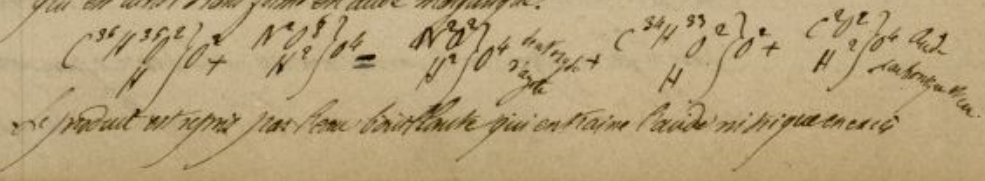 qui en
C³⁶H³⁵O²/H}O² + N²O⁸/H²}O⁴ = N²O²/H²}O⁴ + C³⁴H³³O²/H}O² + C²O²/H²}O⁴ Acide
d'azote
Le produit est repris par l'eau bouillante qui entraine l'acide nitrique en excès